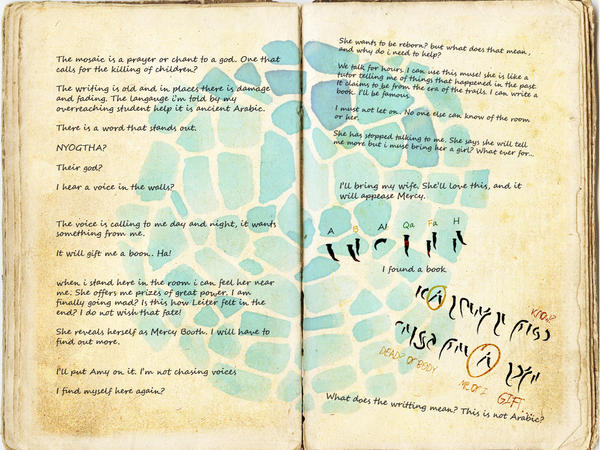 The mosaic is a prayer or chant to a god. One that
calls for the killing of children?
The writing is old and in places there is damage
and fading. The langauge i'm told by my
overreaching student help it is ancient Arabic.
There is a word that stands out.
NYOGTHA?
Their god?
I hear a voice in the walls?
The voice is calling to me day and night, it wants
something from me.
It will gift me a boon. Ha!
when i stand here in the room i can feel her near
me. She offers me prizes of great power. I am
finally going mad? Is this how Leiter felt in the
end? I do not wish that fate!
She reveals herself as Mercy Booth. I will have to
find out more.
I'll put Amy on it. I'm not chasing voices
I find myself here again?
She wants to be reborn? but what does that mean,
and why do i need to help?
We talk for hours. I can use this muse! she is like a
tutor telling me of things that happened in the past.
It claims to be from the era of the trails. I can write a
book. I'll be famous.
I must not let on. No one else can know of the room
or her.
She has stopped talking to me. She says she will tell
me more but i must bring her a girl? What ever for...
I'll bring my wife. She'll love this, and it
will appease Mercy.
A B Al Qa Fa H
I found a book
KNOW?
DEAD? OR BODY
ME OR I
GIFT
What does the writting mean? This is not Arabic?